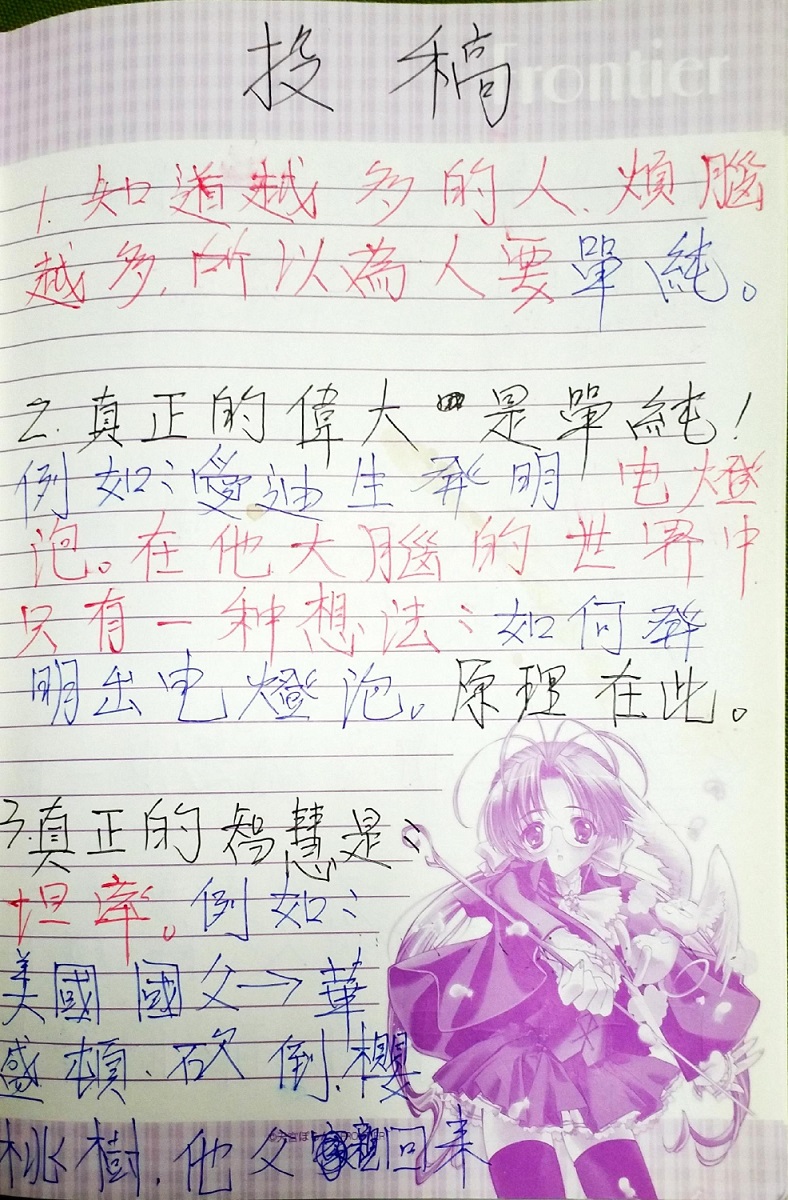 投稿
Frontier
1. 知道越多的人、煩腦
越多,所以為人要單純。
2. 真正的偉大是單純!
例如:愛迪生發明电燈
泡。在他大腦的世界中
只有一种想法:如何發
明出电燈泡。原理在此。
3.真正的智慧是:
坦率。例如:
美國國父→華
盛頓、砍倒、櫻
桃樹、他父親回來